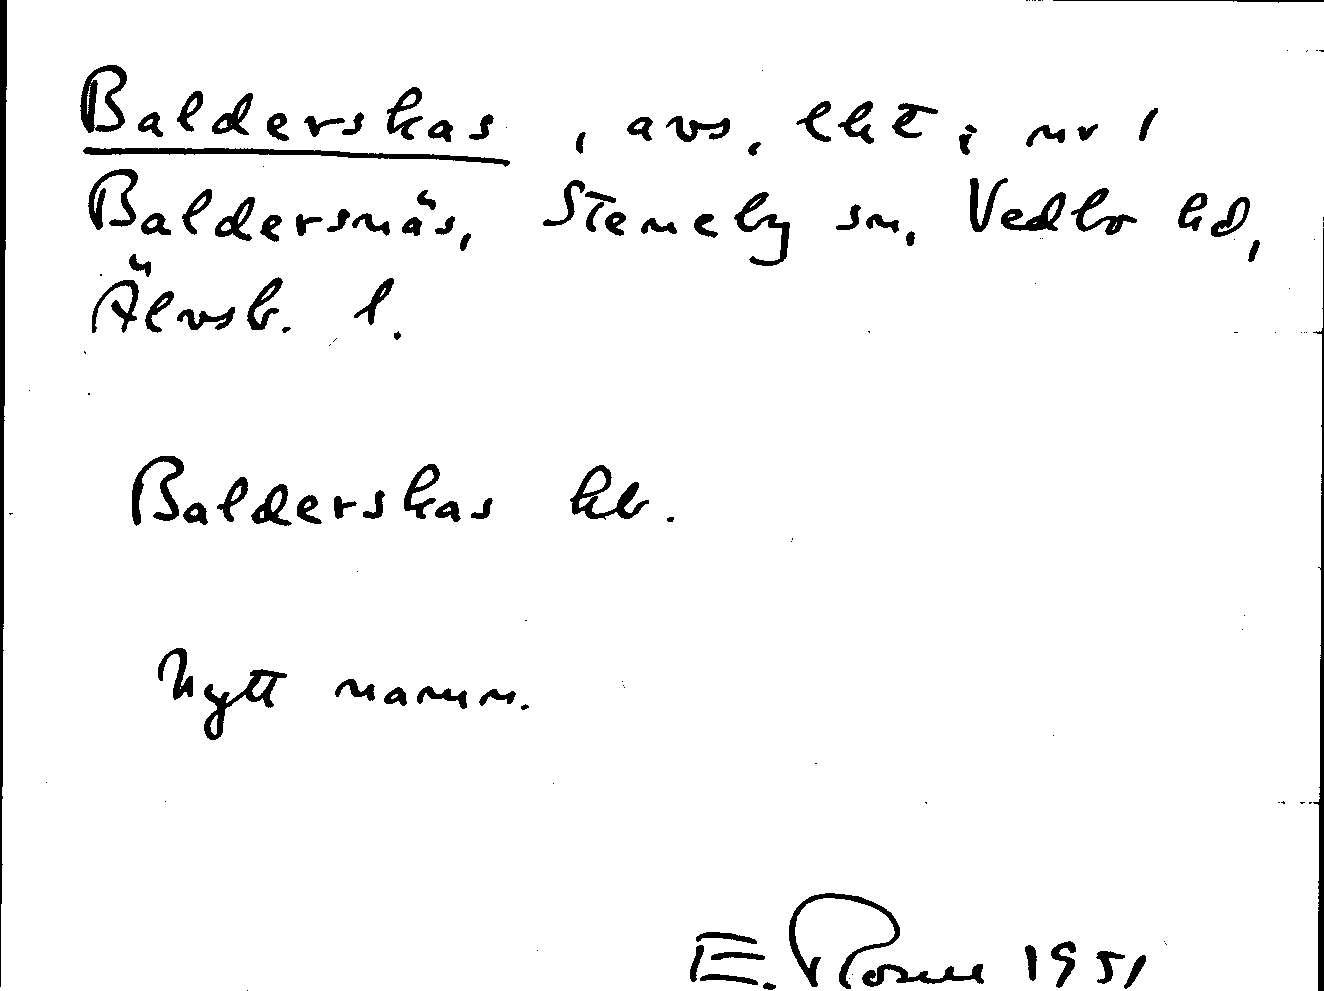 Balderskas, avs. lht i nr 1
Baldersnäs, Steneby sn, Vedbo hd,
Älvsb. l.
Balderskas kb.
Nytt namn.
E. Rosell 1951